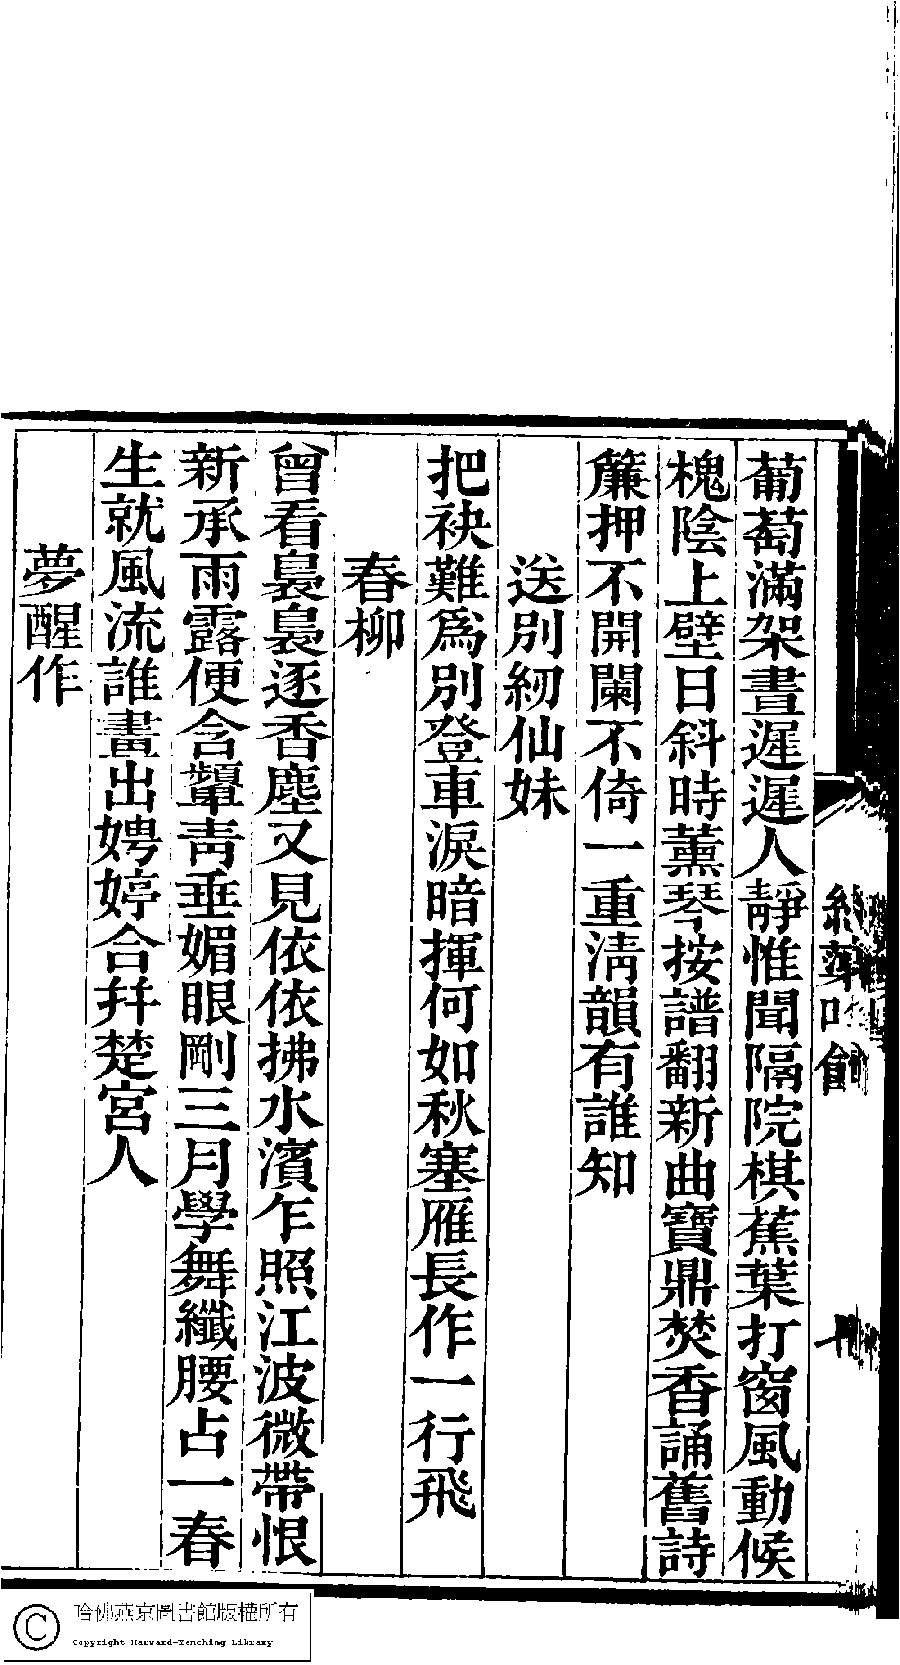 葡萄滿架晝遲遲人靜惟聞隔院棋蕉葉打窗風動候
槐陰上壁日斜時薰琴按譜翻新曲寶鼎焚香誦舊詩
簾押不開闌不倚一重淸韻有誰知
送別紉仙妹
把袂難爲別登車淚暗揮何如秋塞雁長作一行飛
春柳
曾看裊裊逐香塵又見依依拂水濱乍照江波微帶恨
新承雨露便含顰靑垂媚眼剛三月學舞纖腰占一春
生就風流誰畫出娉婷合幷楚宮人
夢醒作
哈佛燕京圖書館版權所有
Copyright Harvard-Yenching Library